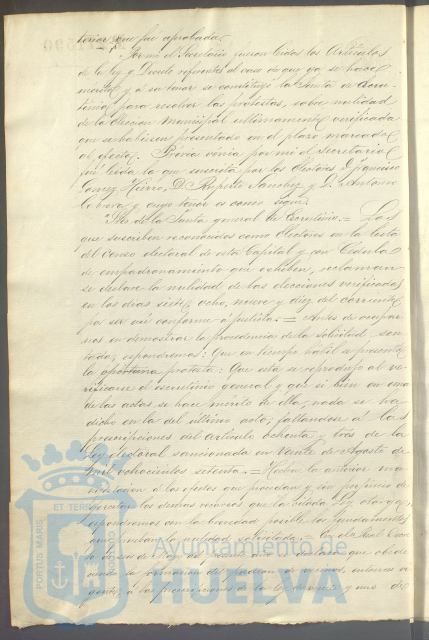 terior, que fué aprobada.
Por mi el Secretario fueron leidos los Articulos
de la ley y Decreto referentes al caso de que ya se hace
merito y á su tenor se constituyó la Junta de Escru-
tinio para resolver las protestas, sobre nulidad
de la eleccion Municipal ultimamente verificada
que se habiesen presentado en el plazo marcado
al efecto. Prévia vénia por mi el Secretario
fué leida la que suscrita por los Electores D. Francisco
Gomez Hierro, D. Ruperto Sanchez y D. Antonio
y cuyo tenor es como sigue:
Sres. de la Junta general de Escrutinio. = Los
que suscriben reconocidos como Electores en la lista
del Censo electoral de esta Capital y con Cédula
de empadronamiento que exhiben, reclaman
se declare la nulidad de las elecciones verificadas
en los dias siete, ocho, nueve y diez del corriente,
por ser asi conforme á justicia. = Antes de ocupar-
nos en demostrar la procedencia de la solicitud sen-
tada, expondremos: Que en tiempo habil se presentó
la oportuna protesta: Que esta se reprodujo al ve-
rificarse el escrutinio general y que si bien en una
de las actas se hace mérito de ella, nada se ha
dicho en la del último acto, faltandose á las
prescripciones del articulo ochenta y tres de la
Ley electoral sancionada en veinte de Agosto de
mil ochocientos setenta. = Hecha la anterior ma-
nifestacion á los efectos que procedan y sin perjuicio de
los demas recursos que la citada Ley
expondremos con la brevedad posible los fundamentos
la nulidad solicitada =
que
la formacion del padron de vecinos
á las prescripciones de la ley
PORTUS MARIS
ET TERRÆ
Ayuntamiento de
HUELVA